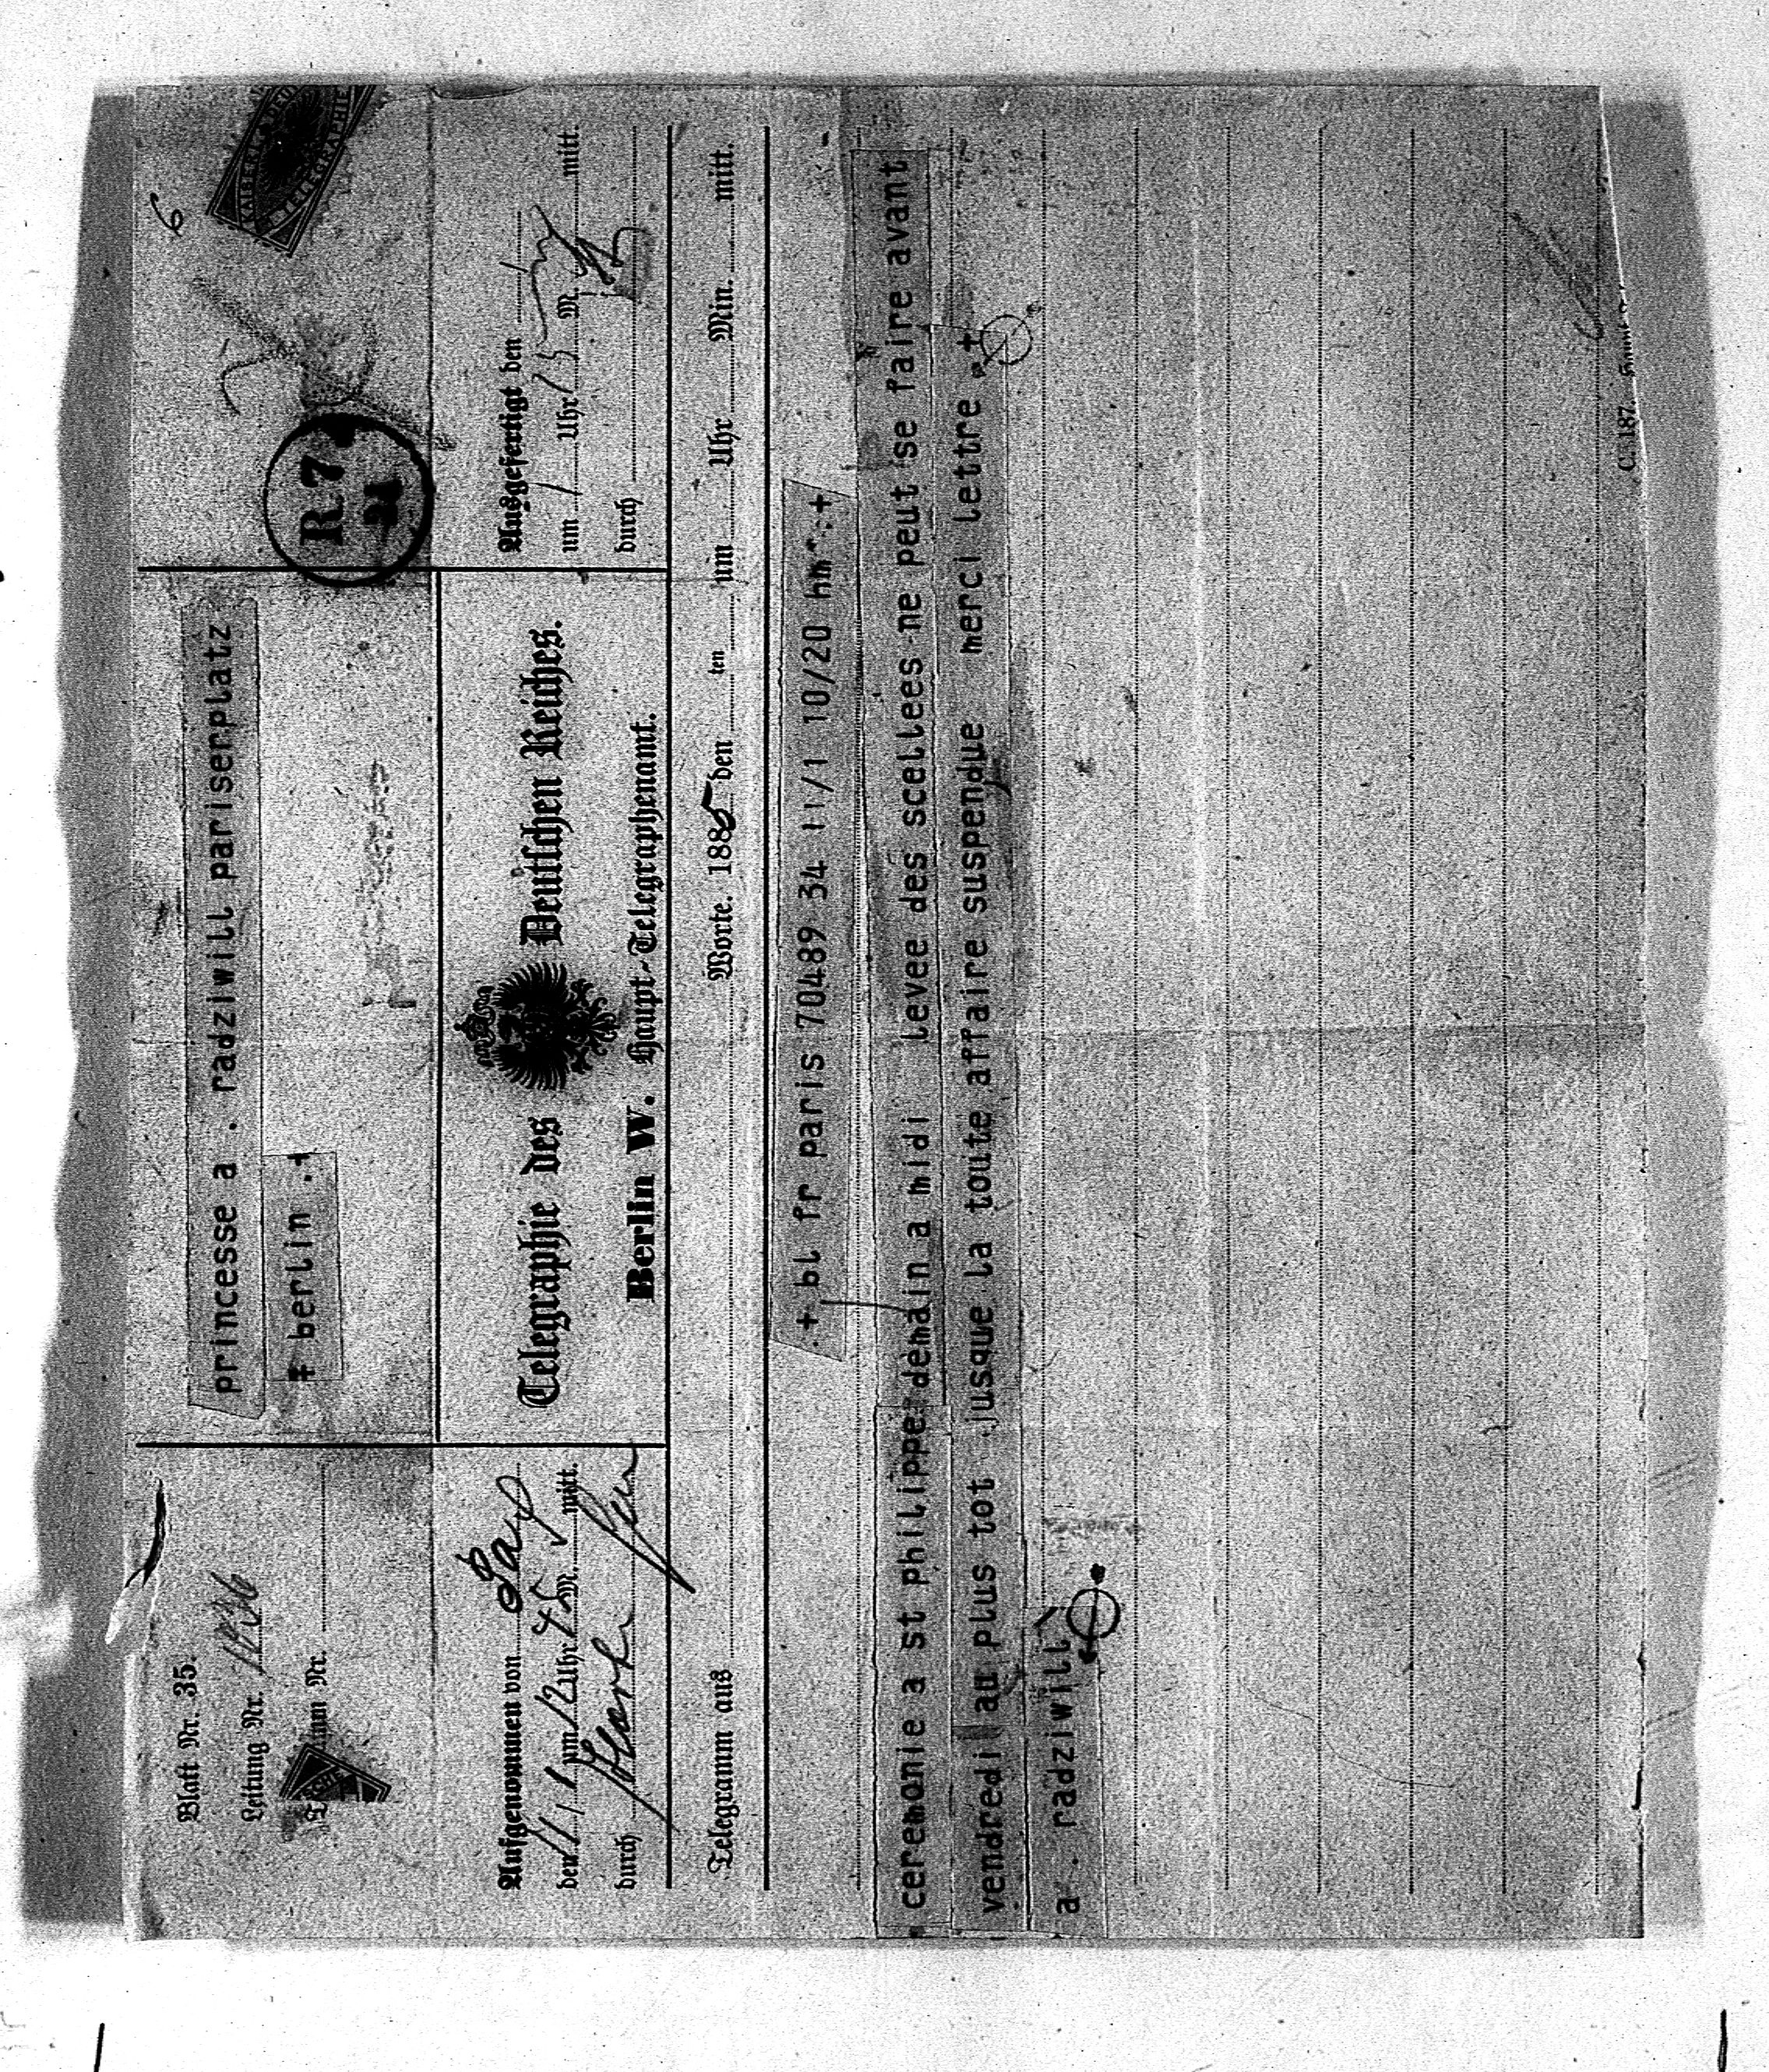 Blatt Nr. 35.
Leitung Nr. 1136
Telegramm Nr.
princesse a . radziwill pariserplatz
‡ berlin .+
R.7
6
KAISERL. DEU
TELEGRAPHIE
Aufgenommen von
den 11/1 um 12 Uhr M. mitt.
durch
Telegraphie des Deutschen Reiches.
Berlin W. Haupt-Telegraphenamt.
Ausgefertigt den
um 1 Uhr M. mitt.
durch
Telegramm aus Worte. 1885 den ten um Uhr Min. mitt.
.+ bl fr paris 70489 34 11/1 10/20 hm .+
ceremonie a st philippe demain a midi levee des scellees ne peut se faire avant
vendredi au plus tot jusque la toute affaire suspendue merci lettre .+
a . radziwill
C. 187.